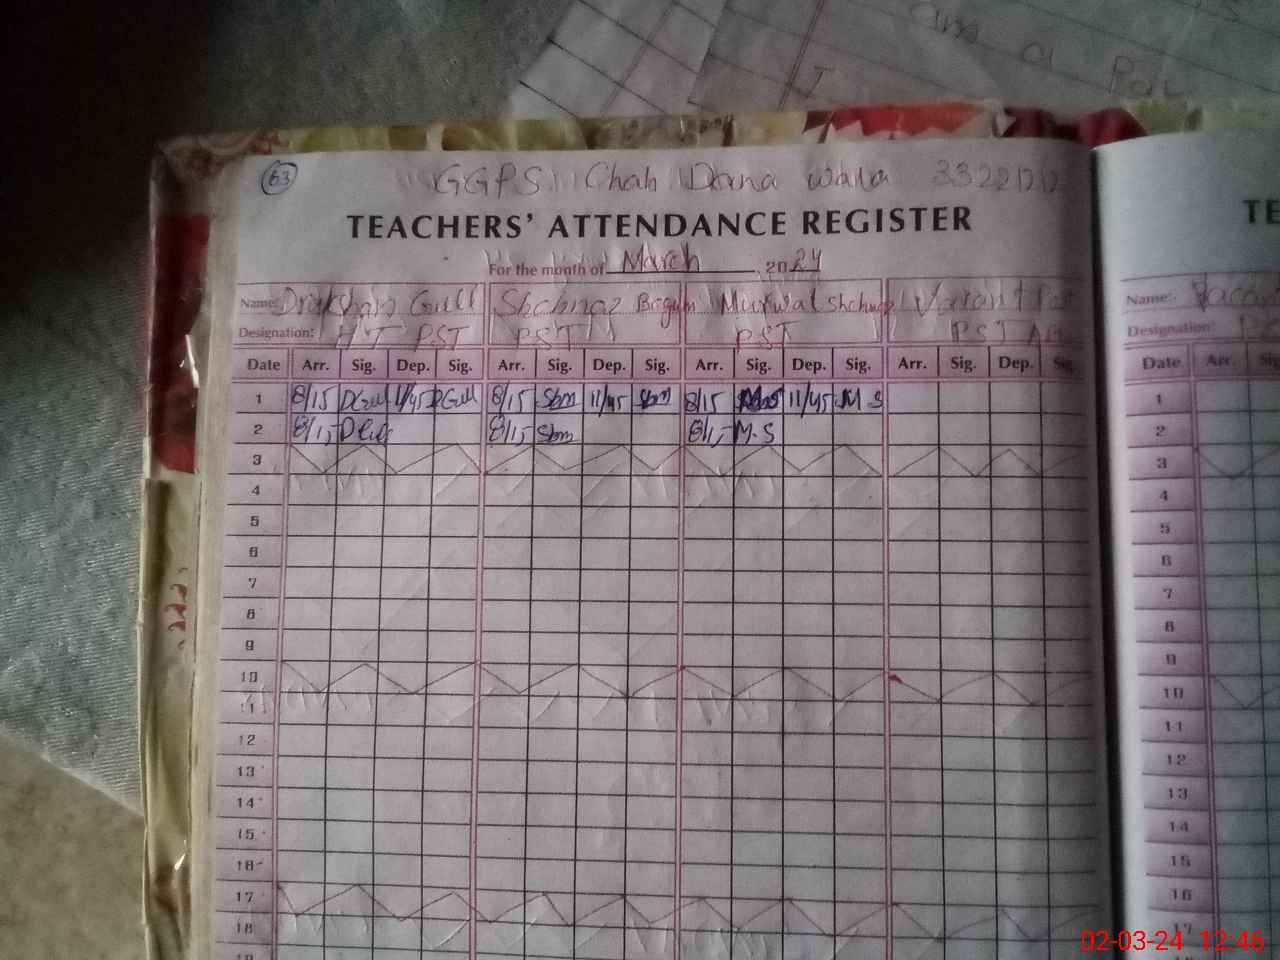 am a Par
63
GGPS Chah Dana Wala
TEACHERS' ATTENDANCE REGISTER
For the month of March 2024
Name: Drakshan Gull Shehnaz Begum Shehnaz Vacant
Designation: HT PST PST PST PST
Date Arr. Sig. Dep. Sig. Arr. Sig. Dep. Sig. Arr. Sig. Dep. Sig. Arr. Sig. Dep. Sig.
1 8/15 DGull 11/45 DGull 8/15 Sbm 11/45 Sbm 8/15 11/45 M.S
2 8/15 8/15 Sbm 8/15 M.S
3
4
5
6
7
8
9
10
11
12
13
14
15
16
17
18
19
TE
Name:-
Designation:
Date Arr. Sig.
1
2
3
4
5
6
7
8
9
10
11
12
13
14
15
16
17
02-03-24 12:46